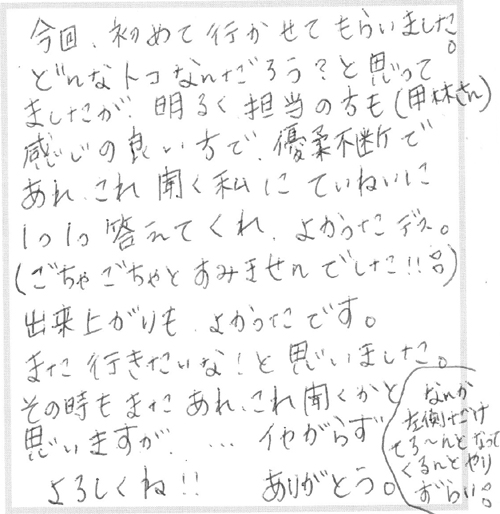 今回、初めて行かせてもらいました。
どんなトコなんだろう?と思って
ましたが、明るく担当の方も(甲林さん)
感じの良い方で、優柔不断で
あれ、これ聞く私にていねいに
1つ1つ答えてくれ、よかったデス。
(ごちゃごちゃとすみませんでした!!)
出来上がりも、よかったです。
また行きたいな!と思いました。
その時もまたあれ、これ聞くかと
思いますが、… イヤがらず
よろしくね!! ありがとう。
なんか
左側だけ
てろ〜んとなって
くるんとやり
ずらい。